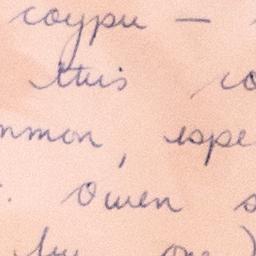 coypu —
this co
mmon, espe
Owen s
by one)